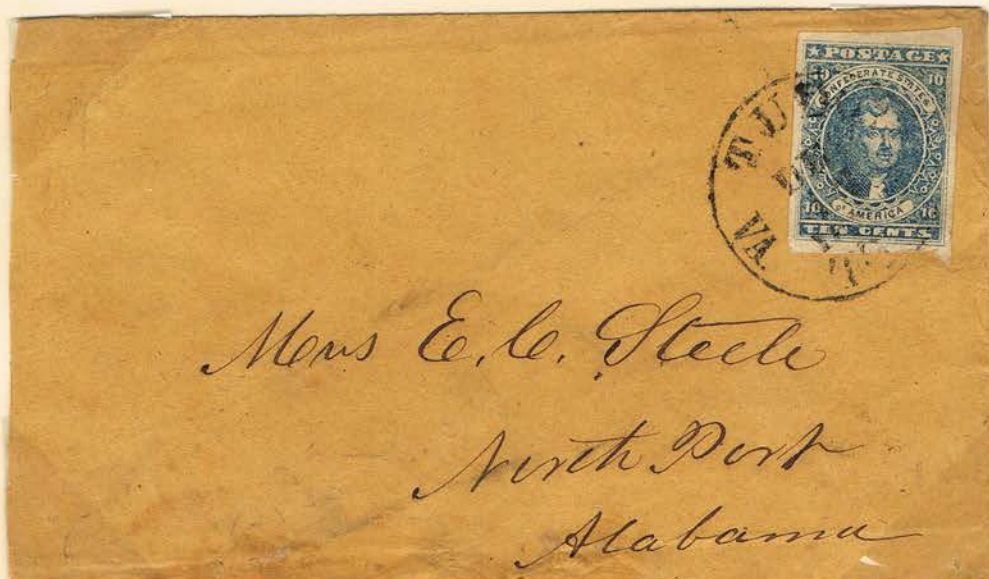 ★POSTAGE★
10 10
CONFEDERATE STATES
OF AMERICA
10 10
TEN CENTS
VA.
Mrs E. C. Steele
North Port
Alabama